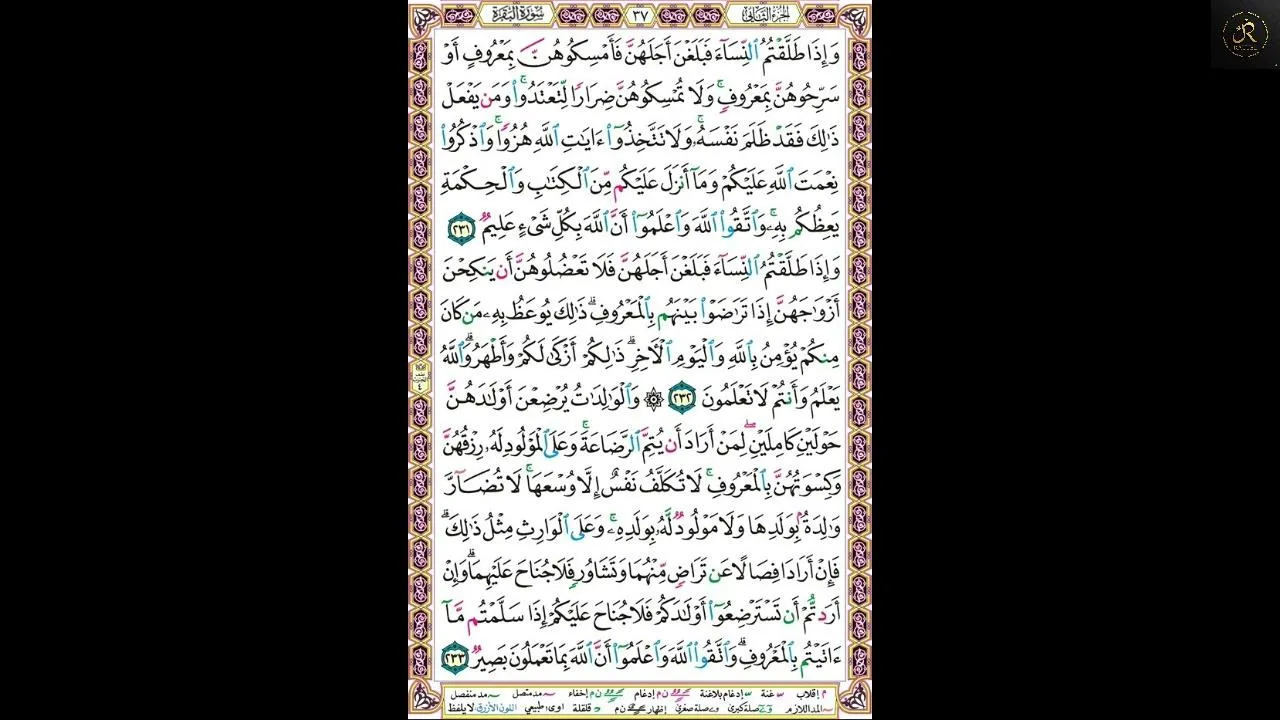 الجزء الثاني ٣٧ سورة البقرة
وَإِذَا طَلَّقْتُمُ ٱلنِّسَآءَ فَبَلَغْنَ أَجَلَهُنَّ فَأَمْسِكُوهُنَّ بِمَعْرُوفٍ أَوْ
سَرِّحُوهُنَّ بِمَعْرُوفٍ ۚ وَلَا تُمْسِكُوهُنَّ ضِرَارًا لِّتَعْتَدُوا۟ ۚ وَمَن يَفْعَلْ
ذَٰلِكَ فَقَدْ ظَلَمَ نَفْسَهُۥ ۚ وَلَا تَتَّخِذُوٓا۟ ءَايَـٰتِ ٱللَّهِ هُزُوًا ۚ وَٱذْكُرُوا۟
نِعْمَتَ ٱللَّهِ عَلَيْكُمْ وَمَآ أَنزَلَ عَلَيْكُم مِّنَ ٱلْكِتَـٰبِ وَٱلْحِكْمَةِ
يَعِظُكُم بِهِۦ ۚ وَٱتَّقُوا۟ ٱللَّهَ وَٱعْلَمُوٓا۟ أَنَّ ٱللَّهَ بِكُلِّ شَىْءٍ عَلِيمٌ ٢٣١
وَإِذَا طَلَّقْتُمُ ٱلنِّسَآءَ فَبَلَغْنَ أَجَلَهُنَّ فَلَا تَعْضُلُوهُنَّ أَن يَنكِحْنَ
أَزْوَٰجَهُنَّ إِذَا تَرَٰضَوْا۟ بَيْنَهُم بِٱلْمَعْرُوفِ ۗ ذَٰلِكَ يُوعَظُ بِهِۦ مَن كَانَ
مِنكُمْ يُؤْمِنُ بِٱللَّهِ وَٱلْيَوْمِ ٱلْـَٔاخِرِ ۗ ذَٰلِكُمْ أَزْكَىٰ لَكُمْ وَأَطْهَرُ ۗ وَٱللَّهُ
يَعْلَمُ وَأَنتُمْ لَا تَعْلَمُونَ ٢٣٢ ۞ وَٱلْوَٰلِدَٰتُ يُرْضِعْنَ أَوْلَـٰدَهُنَّ
حَوْلَيْنِ كَامِلَيْنِ ۖ لِمَنْ أَرَادَ أَن يُتِمَّ ٱلرَّضَاعَةَ ۚ وَعَلَى ٱلْمَوْلُودِ لَهُۥ رِزْقُهُنَّ
وَكِسْوَتُهُنَّ بِٱلْمَعْرُوفِ ۚ لَا تُكَلَّفُ نَفْسٌ إِلَّا وُسْعَهَا ۚ لَا تُضَآرَّ
وَٰلِدَةٌۢ بِوَلَدِهَا وَلَا مَوْلُودٌ لَّهُۥ بِوَلَدِهِۦ ۚ وَعَلَى ٱلْوَارِثِ مِثْلُ ذَٰلِكَ ۗ
فَإِنْ أَرَادَا فِصَالًا عَن تَرَاضٍ مِّنْهُمَا وَتَشَاوُرٍ فَلَا جُنَاحَ عَلَيْهِمَا ۗ وَإِنْ
أَرَدتُّمْ أَن تَسْتَرْضِعُوٓا۟ أَوْلَـٰدَكُمْ فَلَا جُنَاحَ عَلَيْكُمْ إِذَا سَلَّمْتُم مَّآ
ءَاتَيْتُم بِٱلْمَعْرُوفِ ۗ وَٱتَّقُوا۟ ٱللَّهَ وَٱعْلَمُوٓا۟ أَنَّ ٱللَّهَ بِمَا تَعْمَلُونَ بَصِيرٌ ٢٣٣
م إقلاب غنة إدغام بلاغنة ن م إدغام ن م إخفاء مد متصل مد منفصل
المد اللازم صلة كبرى صلة صغرى إظهار ن م قلقلة اوى طبيعي اللون الأزرق لا يلفظ